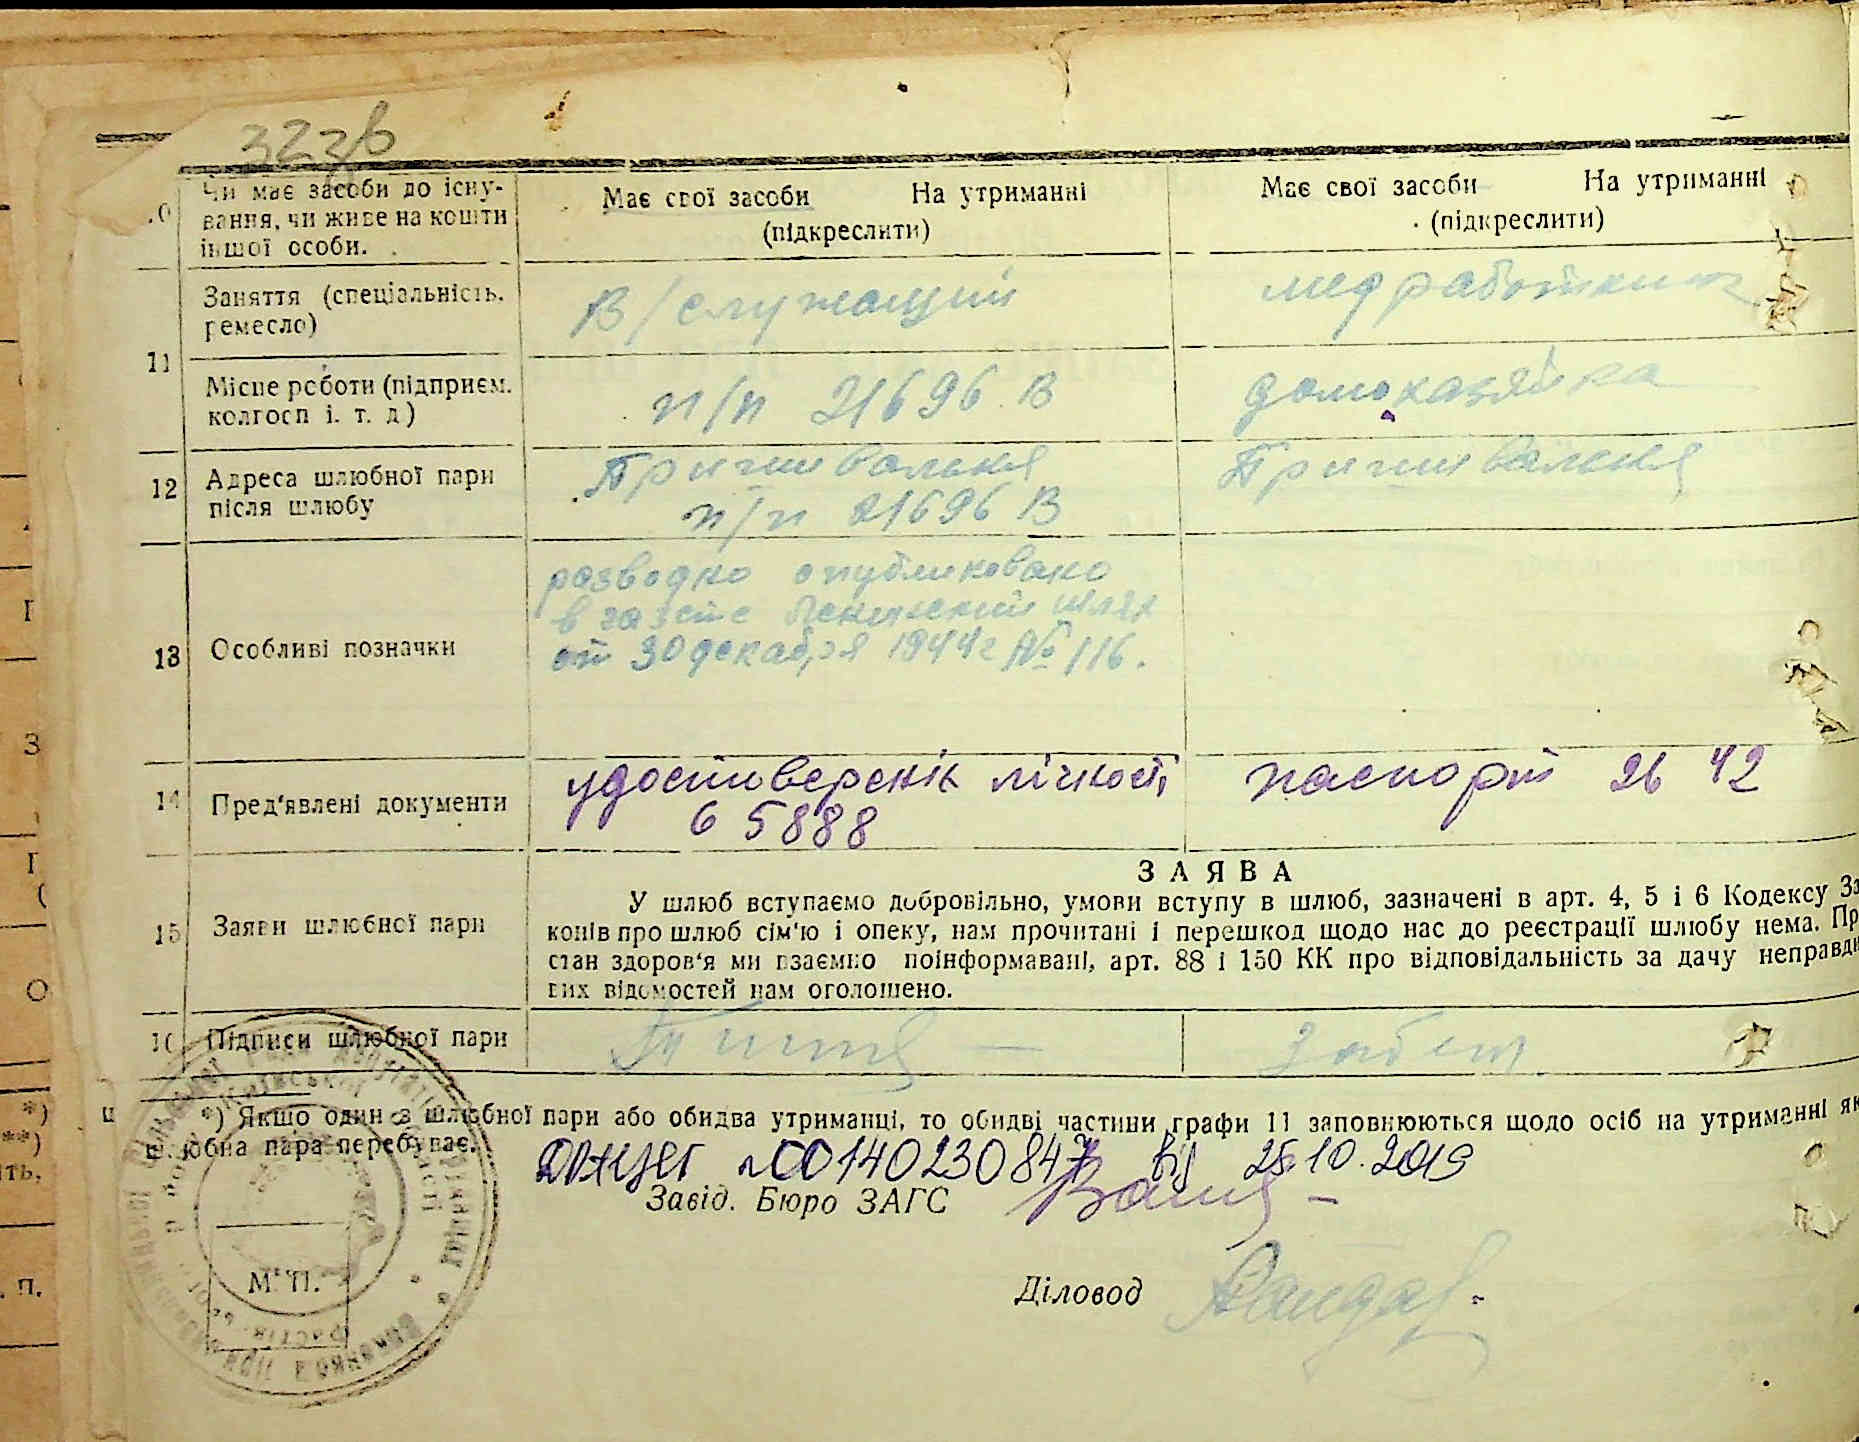 323в
Чи має засоби до існу-
вання, чи живе на кошти
іншої особи.
Має свої засоби На утриманні
(підкреслити)
Має свої засоби На утриманні
(підкреслити)
11
Заняття (спеціальність,
ремесло)
В/служащий
медработник
Місце роботи (підприєм.
колгосп і. т. д)
п/п 21696 В
домохазяйка
12
Адреса шлюбної пари
після шлюбу
п/п 21696 В
13
Особливі позначки
розводно опубликовано
в газете Ленинский шлях
от 30 декабря 1944г № 116.
14
Пред'явлені документи
удостоверенік лічності
65888
паспорт 26 42
З А Я В А
15
Заяви шлюбної пари
У шлюб вступаємо добровільно, умови вступу в шлюб, зазначені в арт. 4, 5 і 6 Кодексу За
конів про шлюб сім'ю і опеку, нам прочитані і перешкод щодо нас до реєстрації шлюбу нема. Пр
стан здоров'я ми взаємно поінформавані, арт. 88 і 150 КК про відповідальність за дачу неправди
вих відомостей нам оголошено.
Підписи шлюбної пари
*) Якщо один з шлюбної пари або обидва утриманці, то обидві частини графи 11 заповнюються щодо осіб на утриманні як
шлюбна пара перебуває.
№00140230847 від 25.10.2019
Завід. Бюро ЗАГС
М. П.
Діловод